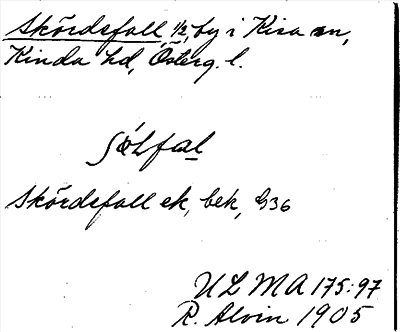 Skördefall 1/2, by i Kisa sn,
Kinda hd, Österg. l.
Skördefall ek, bek, G36
ULMA 175:97
R. Alvin 1905